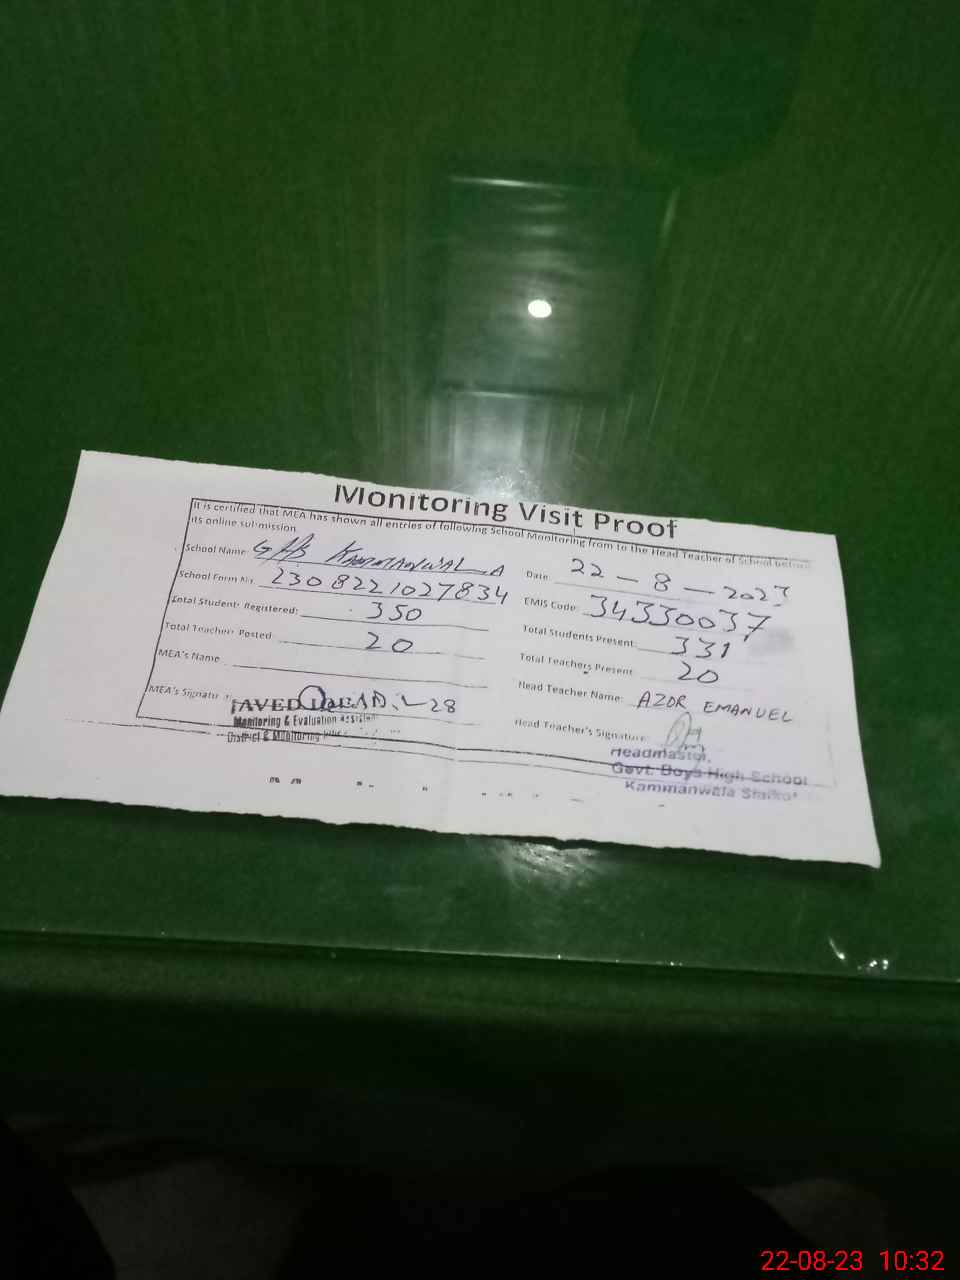 Monitoring Visit Proof
It is certified that MEA has shown all entries of following School Monitoring from to the Head Teacher of School before
its online submission.
School Name: KAMMANWALA
Date 22 - 8 - 2023
School Form No 2308221027834
EMIS Code: 34330037
Total Students Registered: 350
Total Students Present: 331
Total Teachers Posted: 20
Total Teachers Present 20
MEA's Name
Head Teacher Name: AZOR EMANUEL
MEA's Signature
JAVED 28
Monitoring & Evaluation Assistant
District & Monitoring
Head Teacher's Signature:
Headmaster,
Govt. Boys High School
Kammanwala Sialkot
22-08-23 10:32